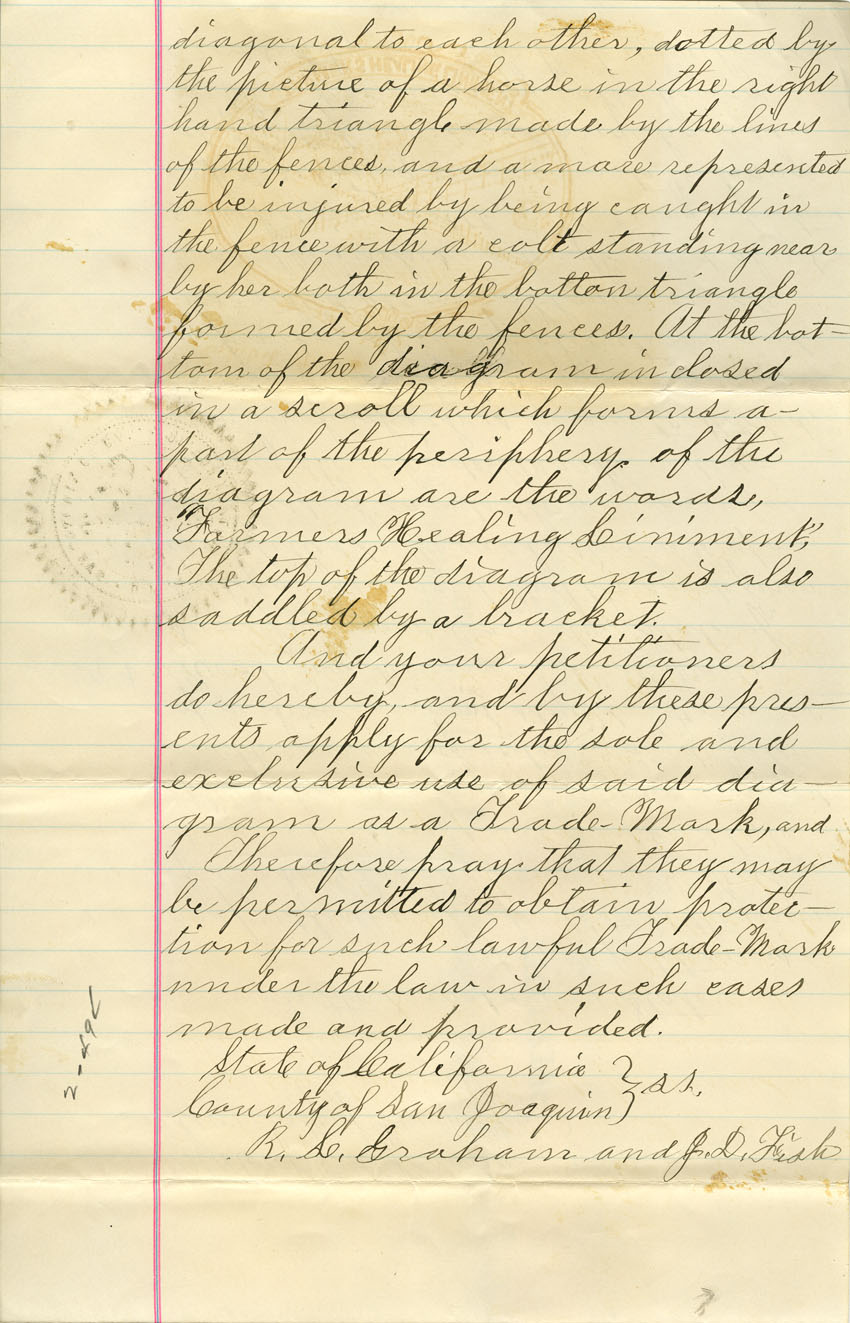 diagonal to each other, dotted by
the picture of a horse in the right
hand triangle made by the lines
of the fences, and a mare represented
to be injured by being caught in
the fence with a colt standing near
by her both in the botton triangle
formed by the fences. At the bot-
tom of the diagram inclosed
in a scroll which forms a-
part of the periphery of the
diagram are the words,
"Farmers Healing Liniment",
The top of the diagram is also
saddled by a bracket.
And your petitioners
do hereby, and by these pres-
ents apply for the sole and
exclusive use of said dia-
gram as a Trade-Mark, and
Therefore pray that they may
be permitted to obtain protec-
tion for such lawful Trade-Mark
under the law in such cases
made and provided.
State of California } ss.
County of San Joaquin
R. L. Graham and J. D. Fish